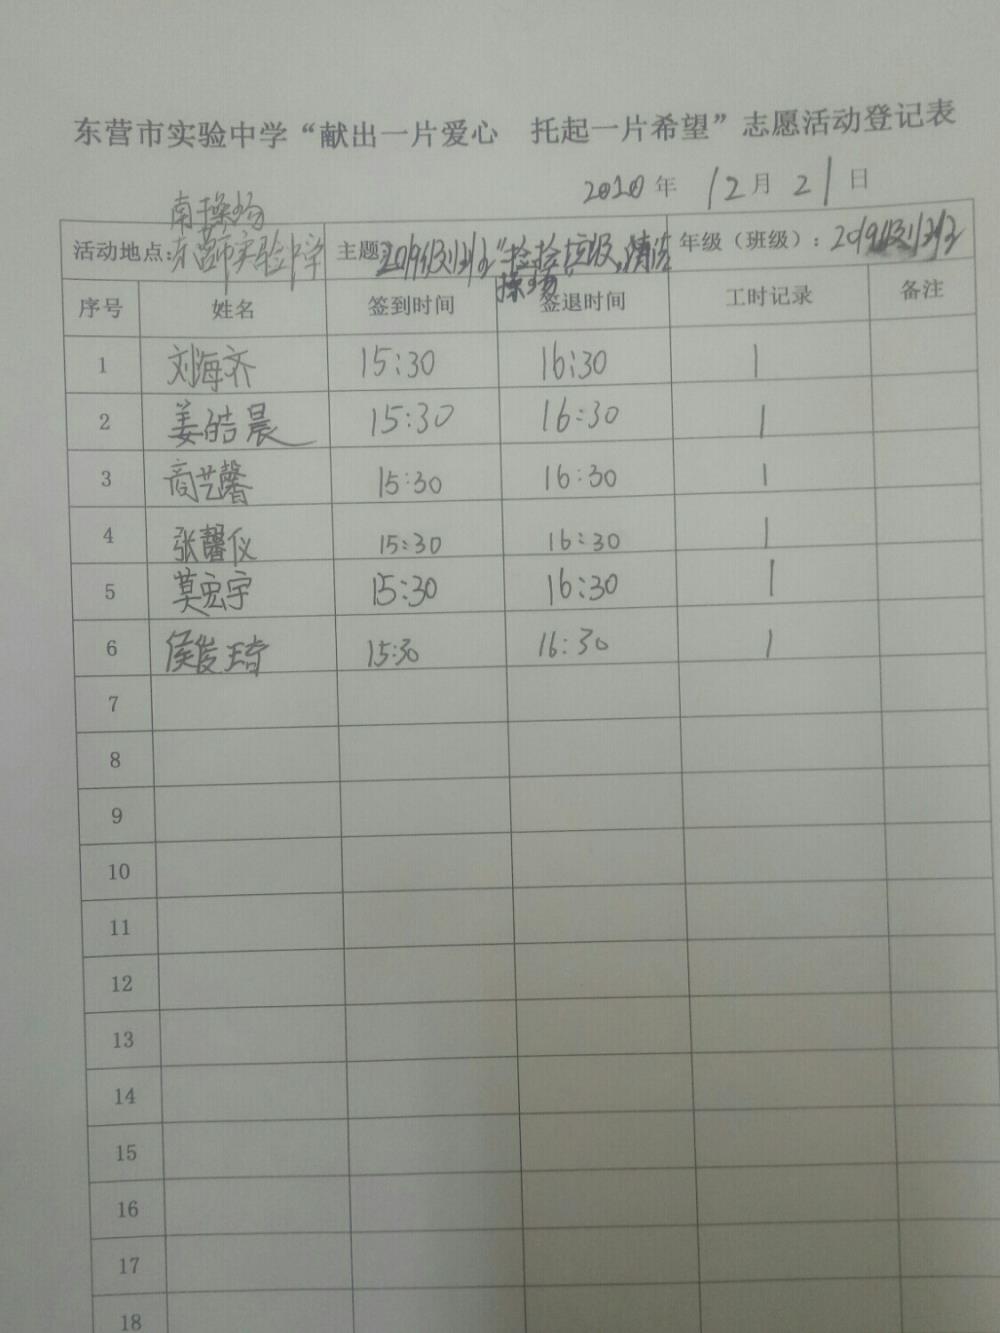 东营市实验中学“献出一片爱心 托起一片希望”志愿活动登记表
2020年 12月 21日
南操场
活动地点:东营市实验中学 主题: "捡拾垃圾,清洁 年级（班级）: 2019级
操场"
序号 姓名 签到时间 签退时间 工时记录 备注
1 刘海齐 15:30 16:30 1
2 姜皓晨 15:30 16:30 1
3 商艺馨 15:30 16:30 1
4 张馨仪 15:30 16:30 1
5 莫宏宇 15:30 16:30 1
6 侯俊琦 15:30 16:30 1
7
8
9
10
11
12
13
14
15
16
17
18